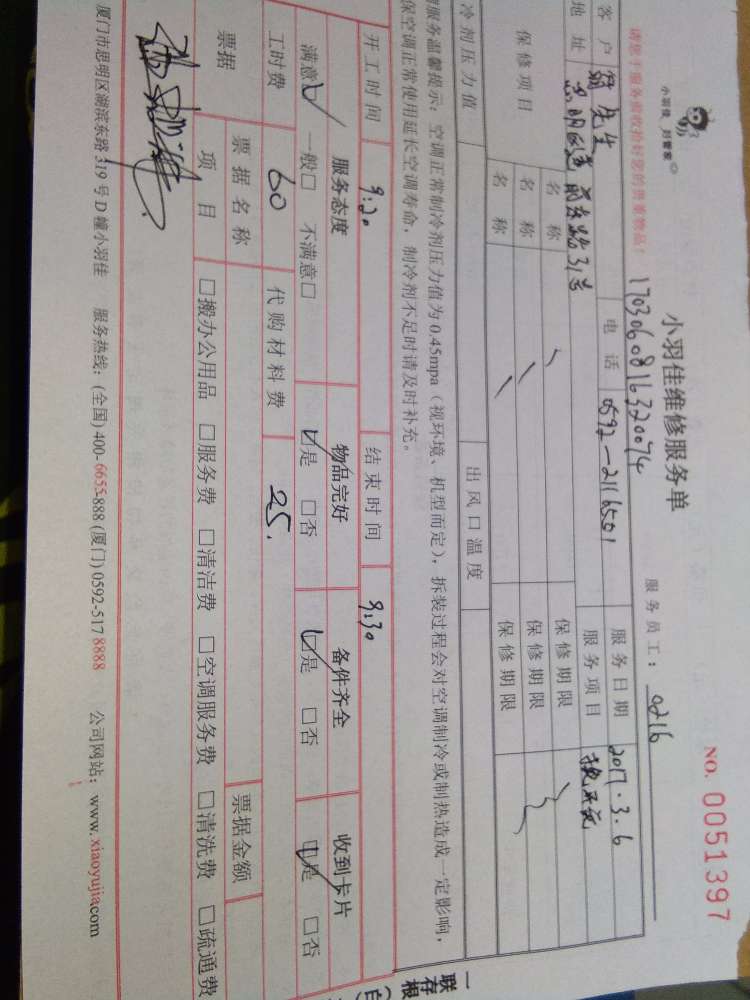 小羽佳 好管家
小羽佳维修服务单
NO. 0051397
1703060816320074
服务员工: 0216
请您于服务验收拾好您的贵重物品!
客户 先生 电话 0592-2116501 服务日期 2017.3.6
地址 思明区 路31号 服务项目
保修项目 名称 保修期限
名称 保修期限
名称 保修期限
冷剂压力值 出风口温度
服务温馨提示: 空调正常制冷剂压力值为0.45mpa (视环境、机型而定), 拆装过程会对空调制冷或制热造成一定影响,
保空调正常使用延长空调寿命, 制冷剂不足时请及时补充。
开工时间 9:20 结束时间 9:30
服务态度 物品完好 备件齐全 收到卡片
满意☑ 一般□ 不满意□ ☑是 □否 ☑是 □否 ☑是 □否
工时费 60 代购材料费 25.
票据 票据名称 票据金额
项目 □搬办公用品 □服务费 □清洁费 □空调服务费 □清洗费 □疏通费
厦门市思明区湖滨东路319号D幢小羽佳 服务热线: (全国) 400-6655-888 (厦门) 0592-517 8888 公司网站: www.xiaoyujia.com
一联存根(白